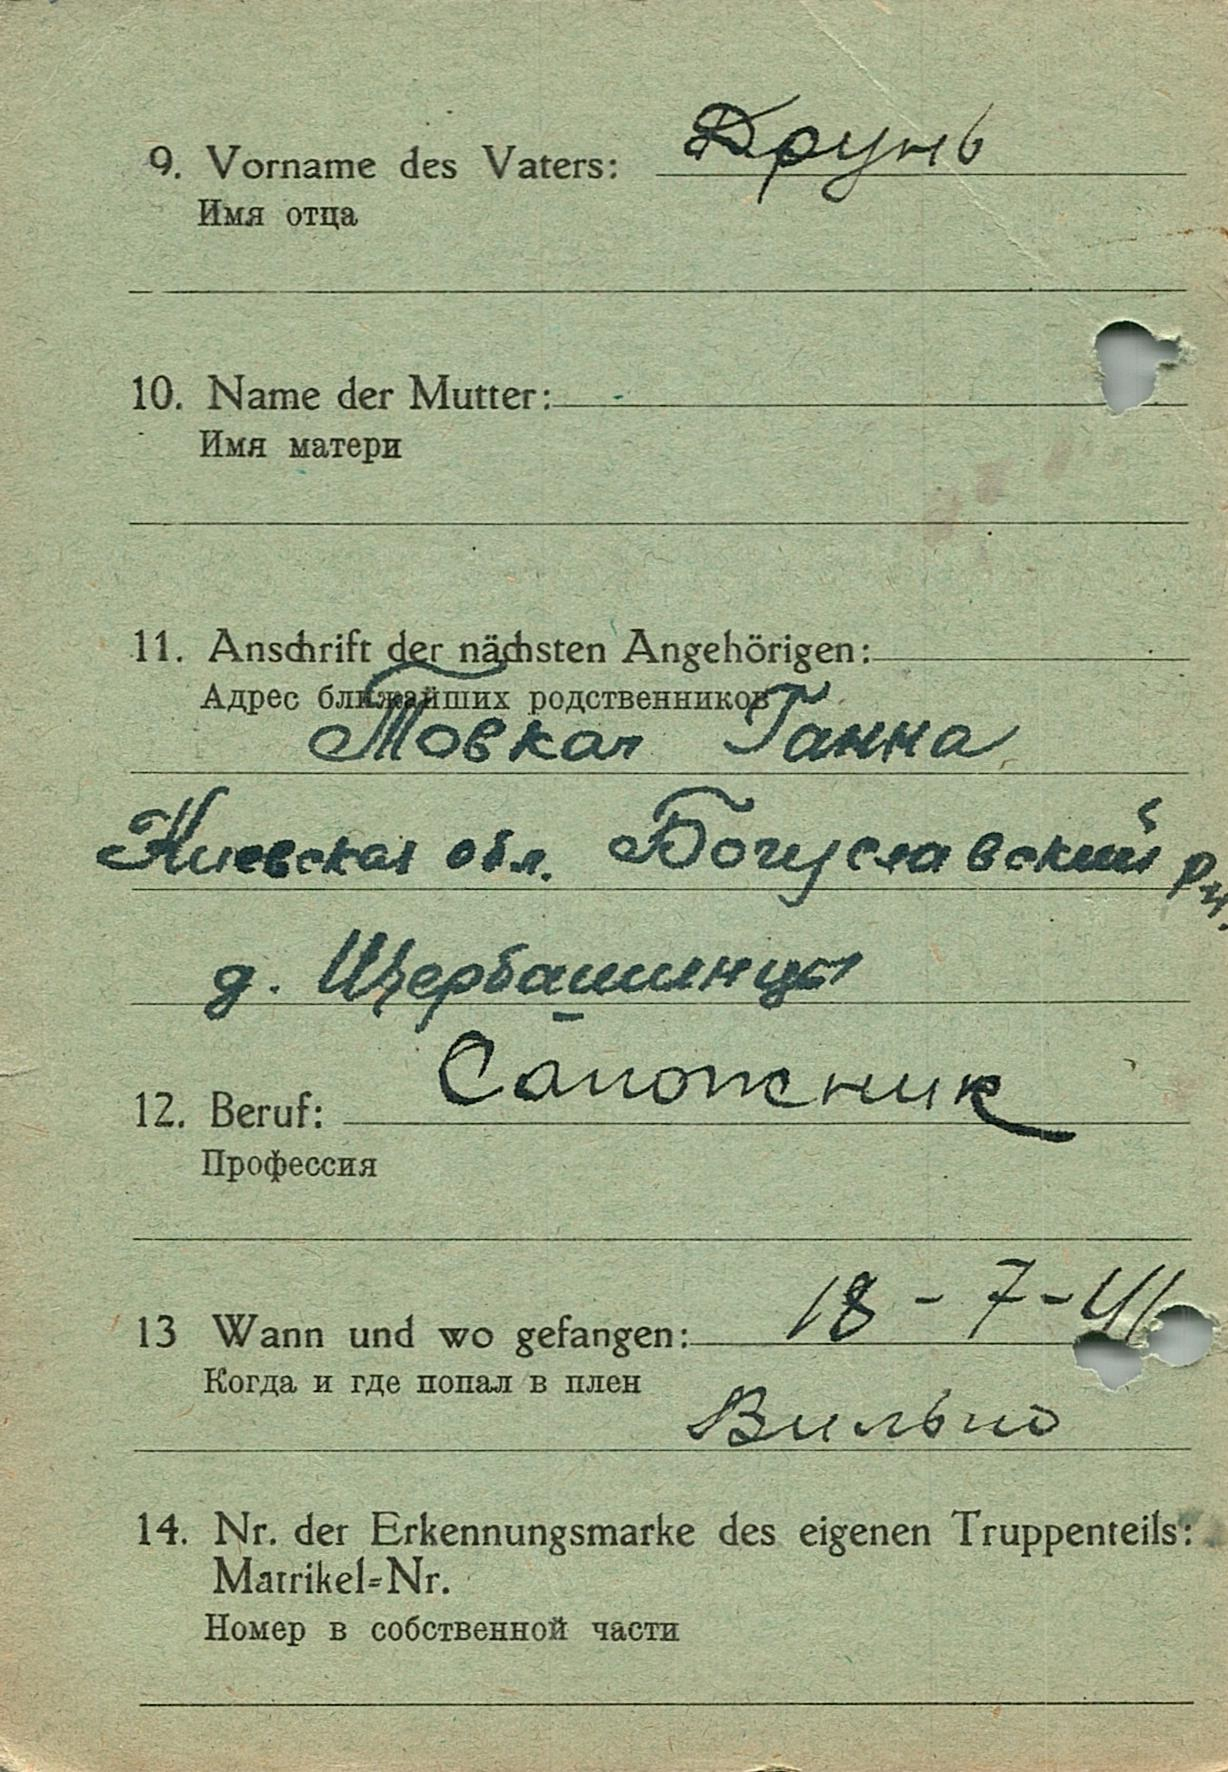 9. Vorname des Vaters: Друнь
Имя отца
10. Name der Mutter:
Имя матери
11. Anschrift der nächsten Angehörigen:
Адрес ближайших родственников
Товкач Ганна
Киевская обл. Богуславский р-н.
д. Щербашинцы
12. Beruf: Сапожник
Профессия
13 Wann und wo gefangen: 18-7-41
Когда и где попал в плен
Вильно
14. Nr. der Erkennungsmarke des eigenen Truppenteils:
Matrikel=Nr.
Номер в собственной части